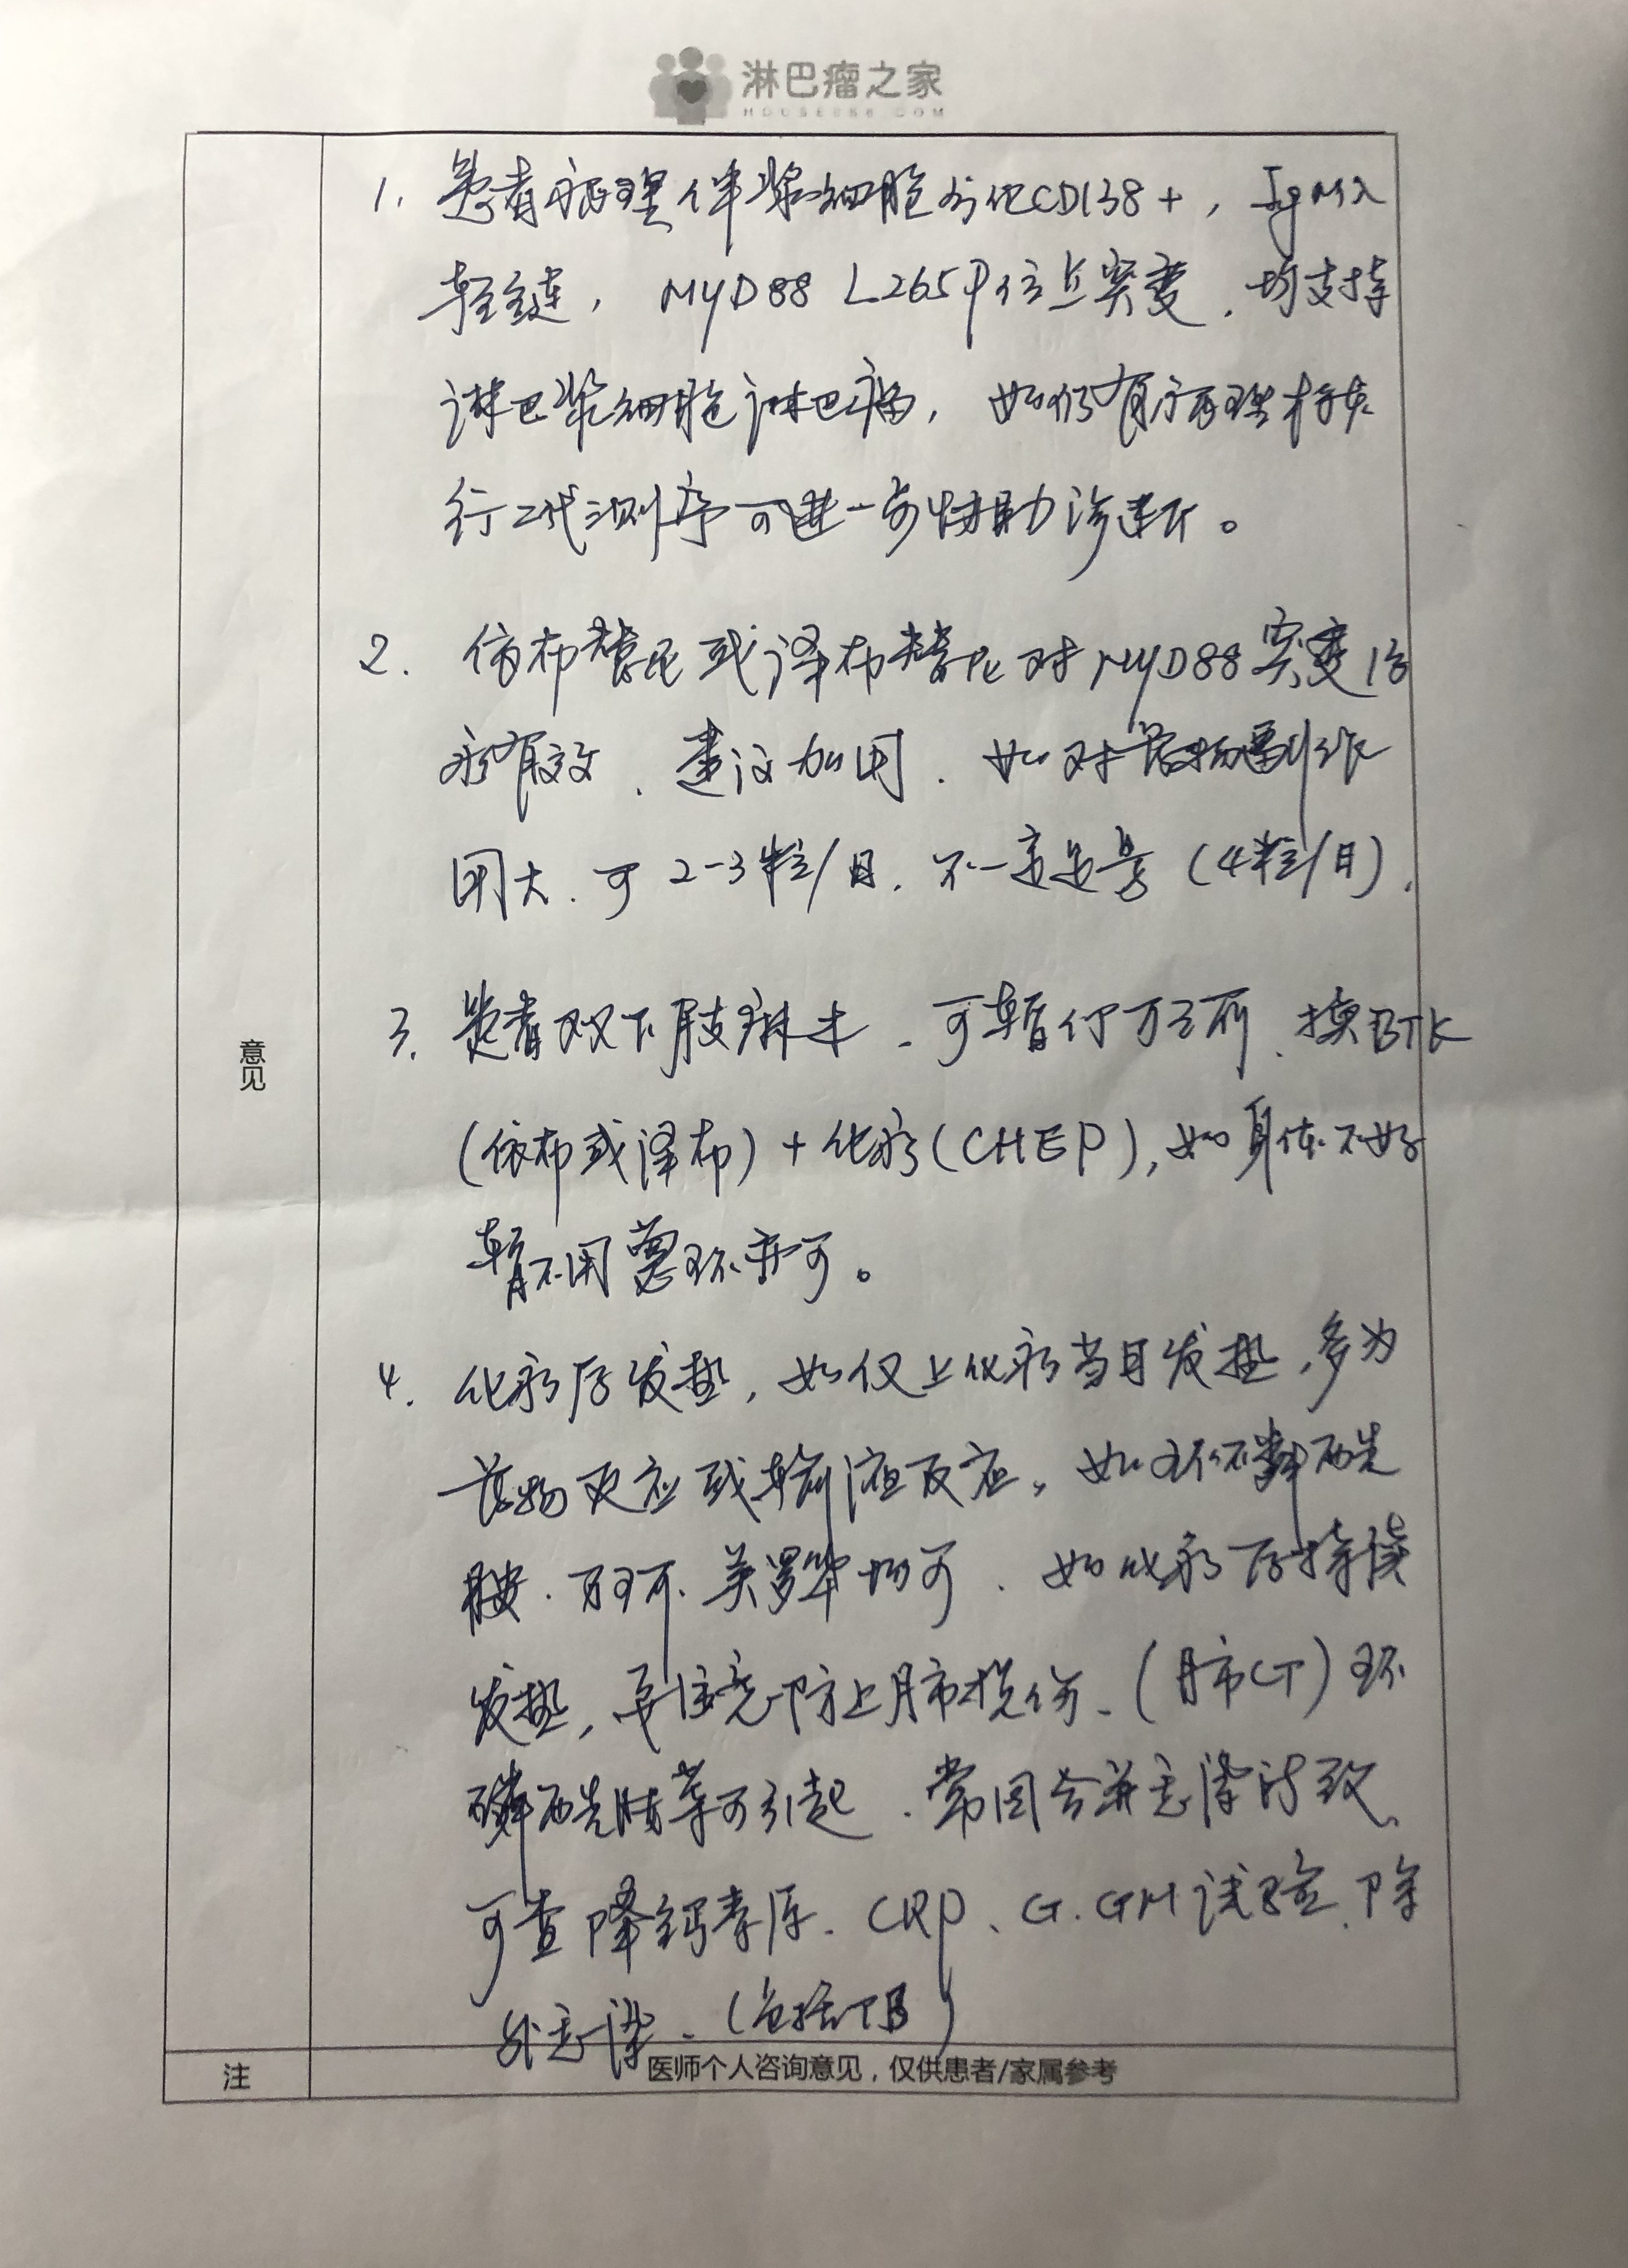 淋巴瘤之家
HOUSE086.COM
1. 患者病理伴浆细胞分化CD138+, IgMλ
轻链, MYD88 L265P位点突变. 均支持
淋巴浆细胞淋巴瘤, 如仍有病理标本
行二代测序可进一步协助诊断。
2. 依布替尼或泽布替尼对MYD88突变治
疗有效. 建议加用. 如对药物副作
用大. 可2-3粒/日. 不一定足量(4粒/日).
3. 患者双下肢麻木. 可暂停万珂. 换BTK
(依布或泽布)+化疗(CHEP), 如身体不好
暂不用蒽环亦可。
意见
4. 化疗后发热, 如仅上化疗当日发热, 多为
药物反应或输液反应. 如环磷酰
胺. 万珂. 美罗华均可. 如化疗后持续
发热, 要注意防止肺损伤. (肺CT) 环
磷酰胺等可引起. 常因合并感染所致.
可查降钙素原. CRP、G. GM试验. 除
外感染. (包括TB)
注
医师个人咨询意见，仅供患者/家属参考